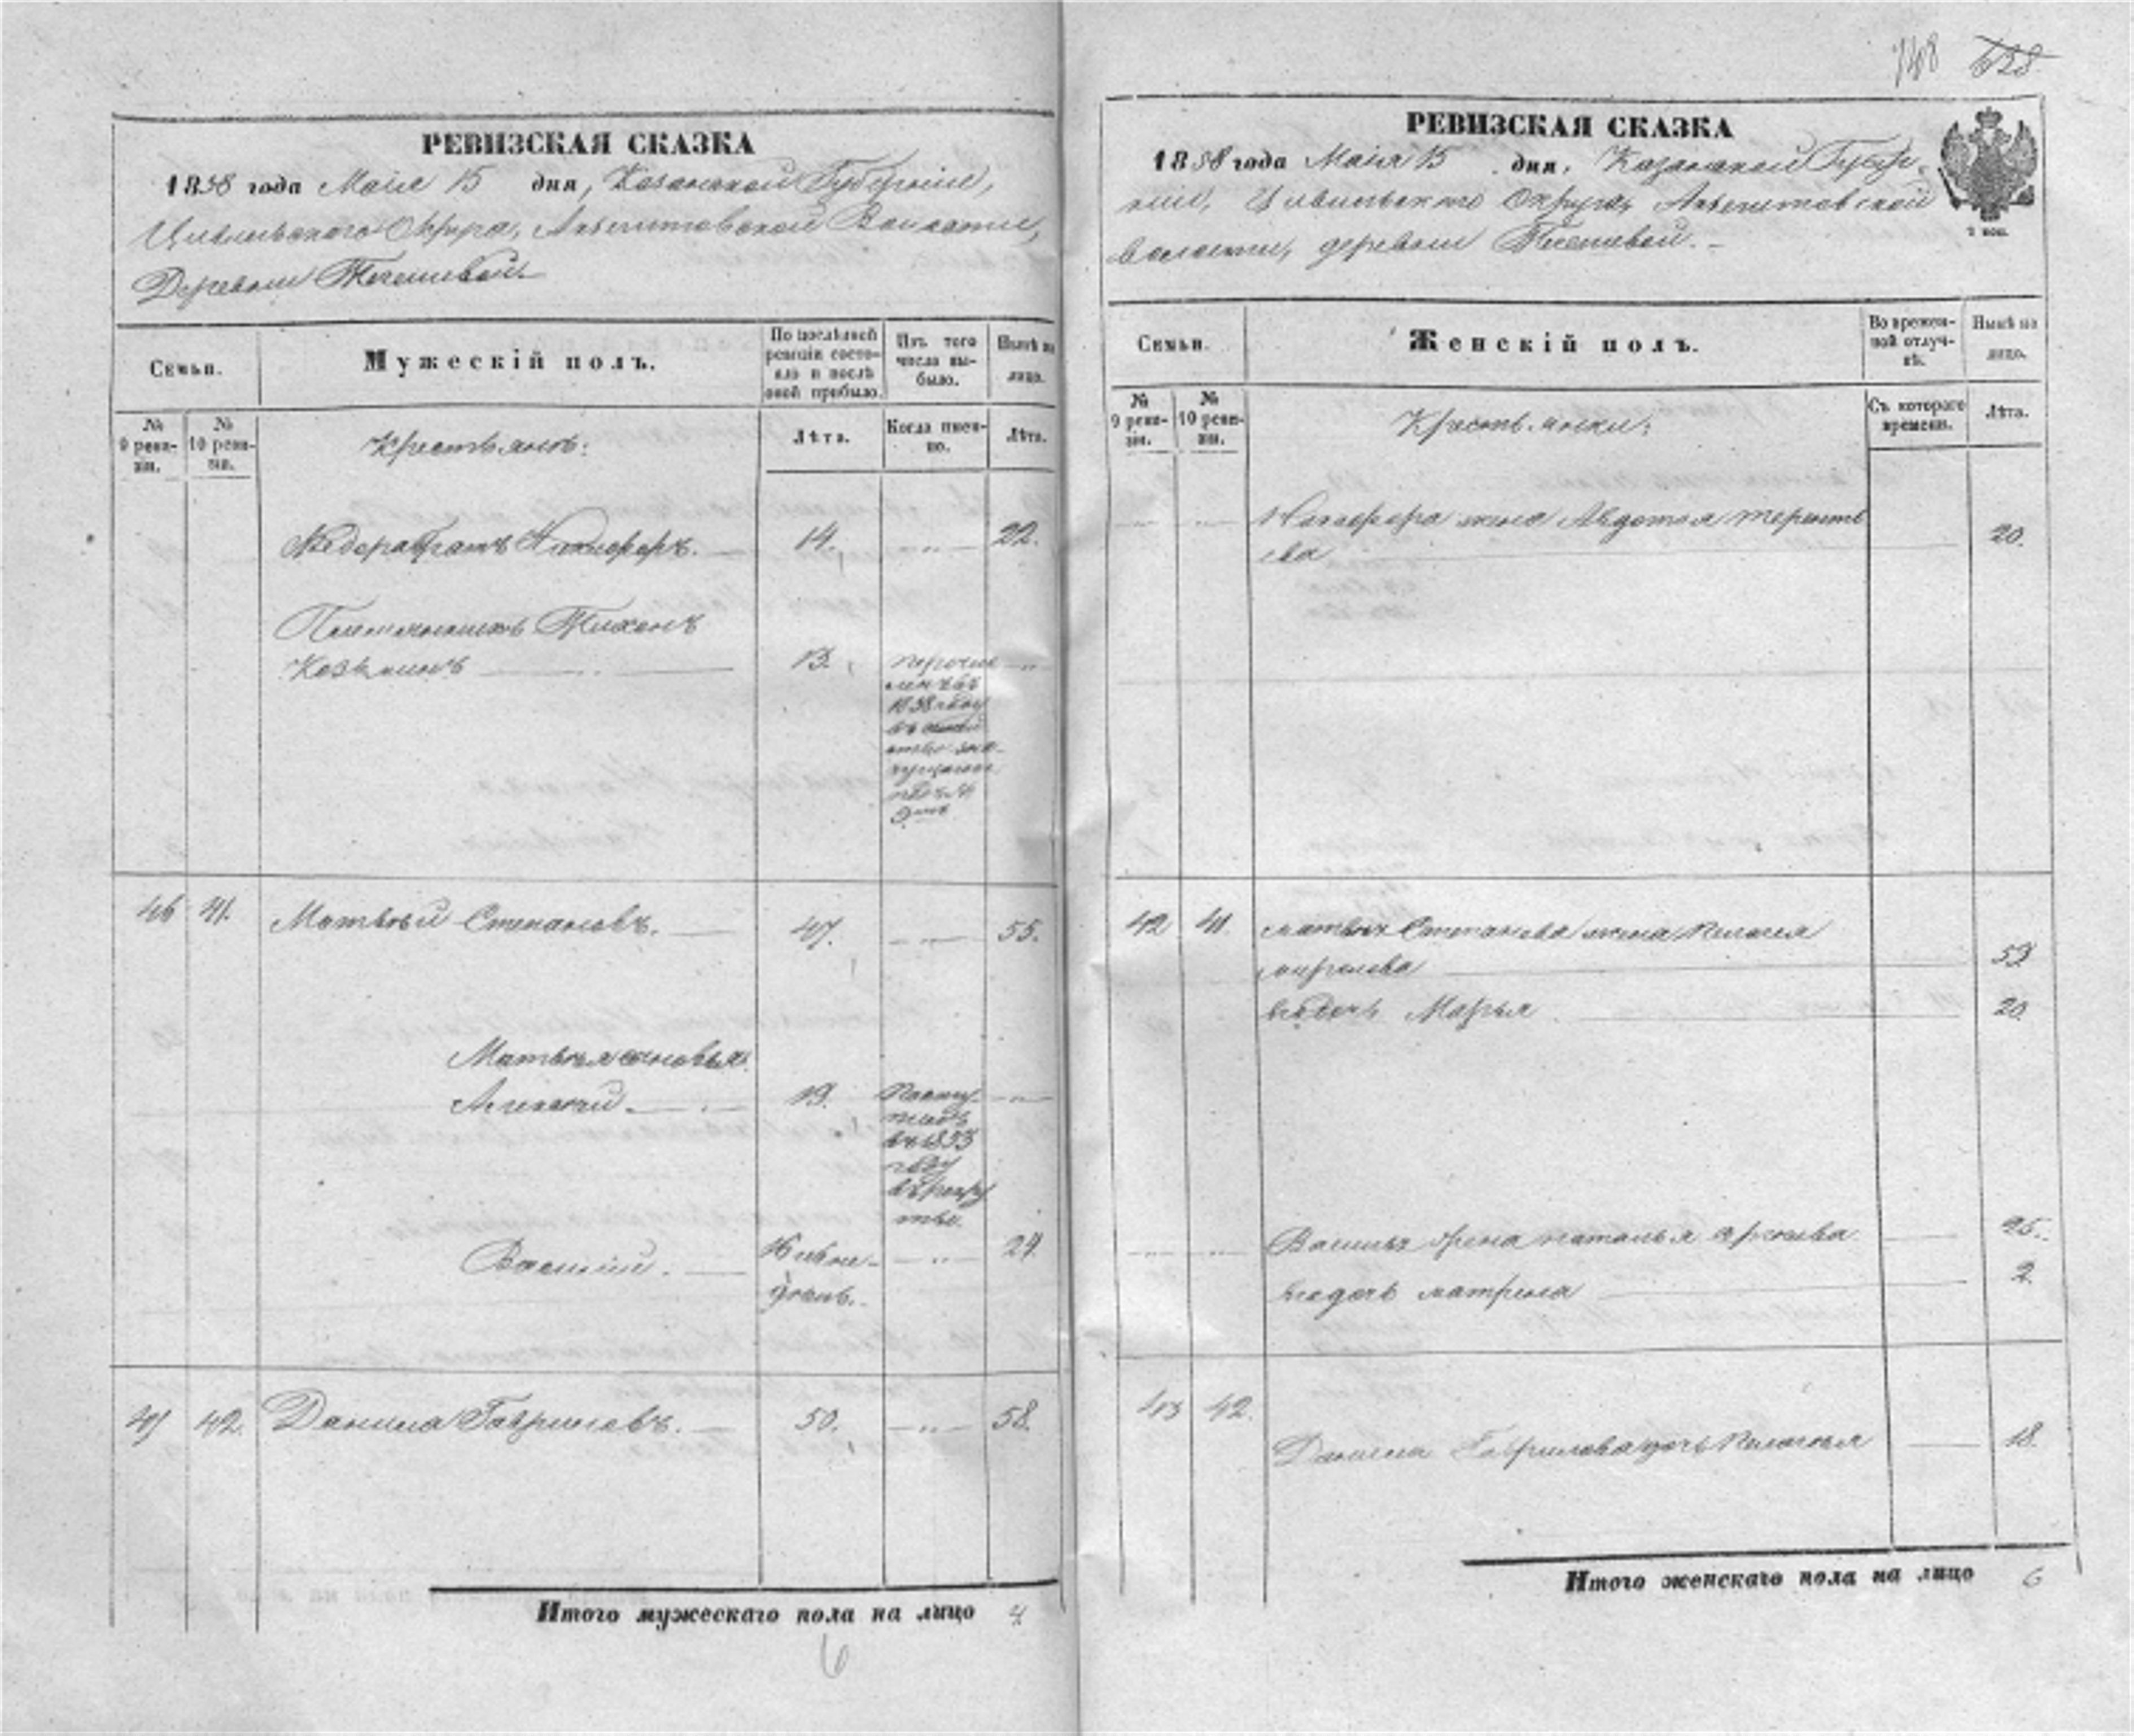 748 628
РЕВИЗСКАЯ СКАЗКА
1858 года Маія 15 дня, Казанской Губерніи,
Цивильскаго Округа, Волости,
Деревни
Семьи.
Мужескій полъ.
По послѣдней ревизіи состояло и послѣ оной прибыло.
Изъ того числа выбыло.
Нынѣ на лицо.
№ 9 ревизіи.
№ 10 ревизіи.
Крестьяне:
Лѣта.
Когда именно.
Лѣта.
Федора братъ Никифоръ. 14. 22.
Племянникъ Тихонъ
Козминъ 13.
1858 году
46 41. Матвѣй Степановъ. 47. 55.
Матвѣя сыновья:
Алексей. 19.
въ 1853
году
Василій. 24.
47 42. Данила Гавриловъ. 50. 58.
Итого мужескаго пола на лицо 4
6
РЕВИЗСКАЯ СКАЗКА
1858 года Маія 15 дня, Казанской Губер-
ніи, Цивильскаго Округа,
волости, деревни
Семьи.
Женскій полъ.
Во временной отлучкѣ.
Нынѣ на лицо.
№ 9 ревизіи.
№ 10 ревизіи.
Крестьянки:
Съ котораго времени.
Лѣта.
Никифора жена Авдотья Терентье
ва 20.
42 41. Матвѣя Степанова жена Пелагея
59
дочь Марья 20.
Василья жена Наталья 25.
дочь Матрена 2.
43 42.
Данила Гаврилова дочь Пелагея 18.
Итого женскаго пола на лицо 6